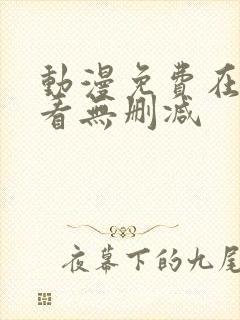 動漫免費在
看無刪減
夜幕下的九尾